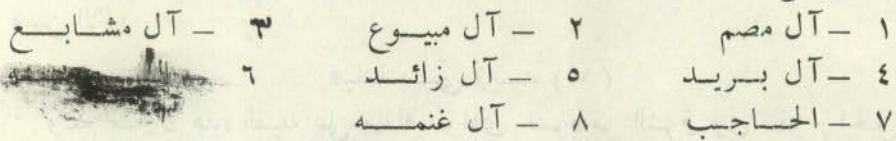 ١ – آل مصم ٢ – آل مبيوع ٣ – آل مشابع
٤ – آل بريد ٥ – آل زائد ٦
٧ – الحاجب ٨ – آل غنمه